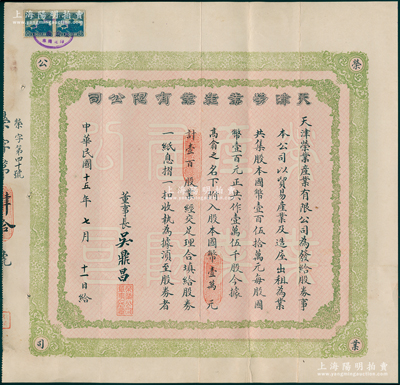 上海陽明拍賣
榮
公
天津榮業產業有限公司
天津榮業產業有限公司為發給股券事
本公司以貿易產業及造屋出租為業
共集股本國幣壹百伍拾萬元每股國
幣壹百元正共作壹萬伍千股今據
高翕之名下附入股本國幣壹萬元
計壹百股業經交足理合填給股券
一紙息摺一扣收執為據須至股券者
董事長 吳鼎昌
中華民國十五年七月十一日給
榮字第四十號
榮字第肆拾號
業
司
上海陽明拍賣有限公司